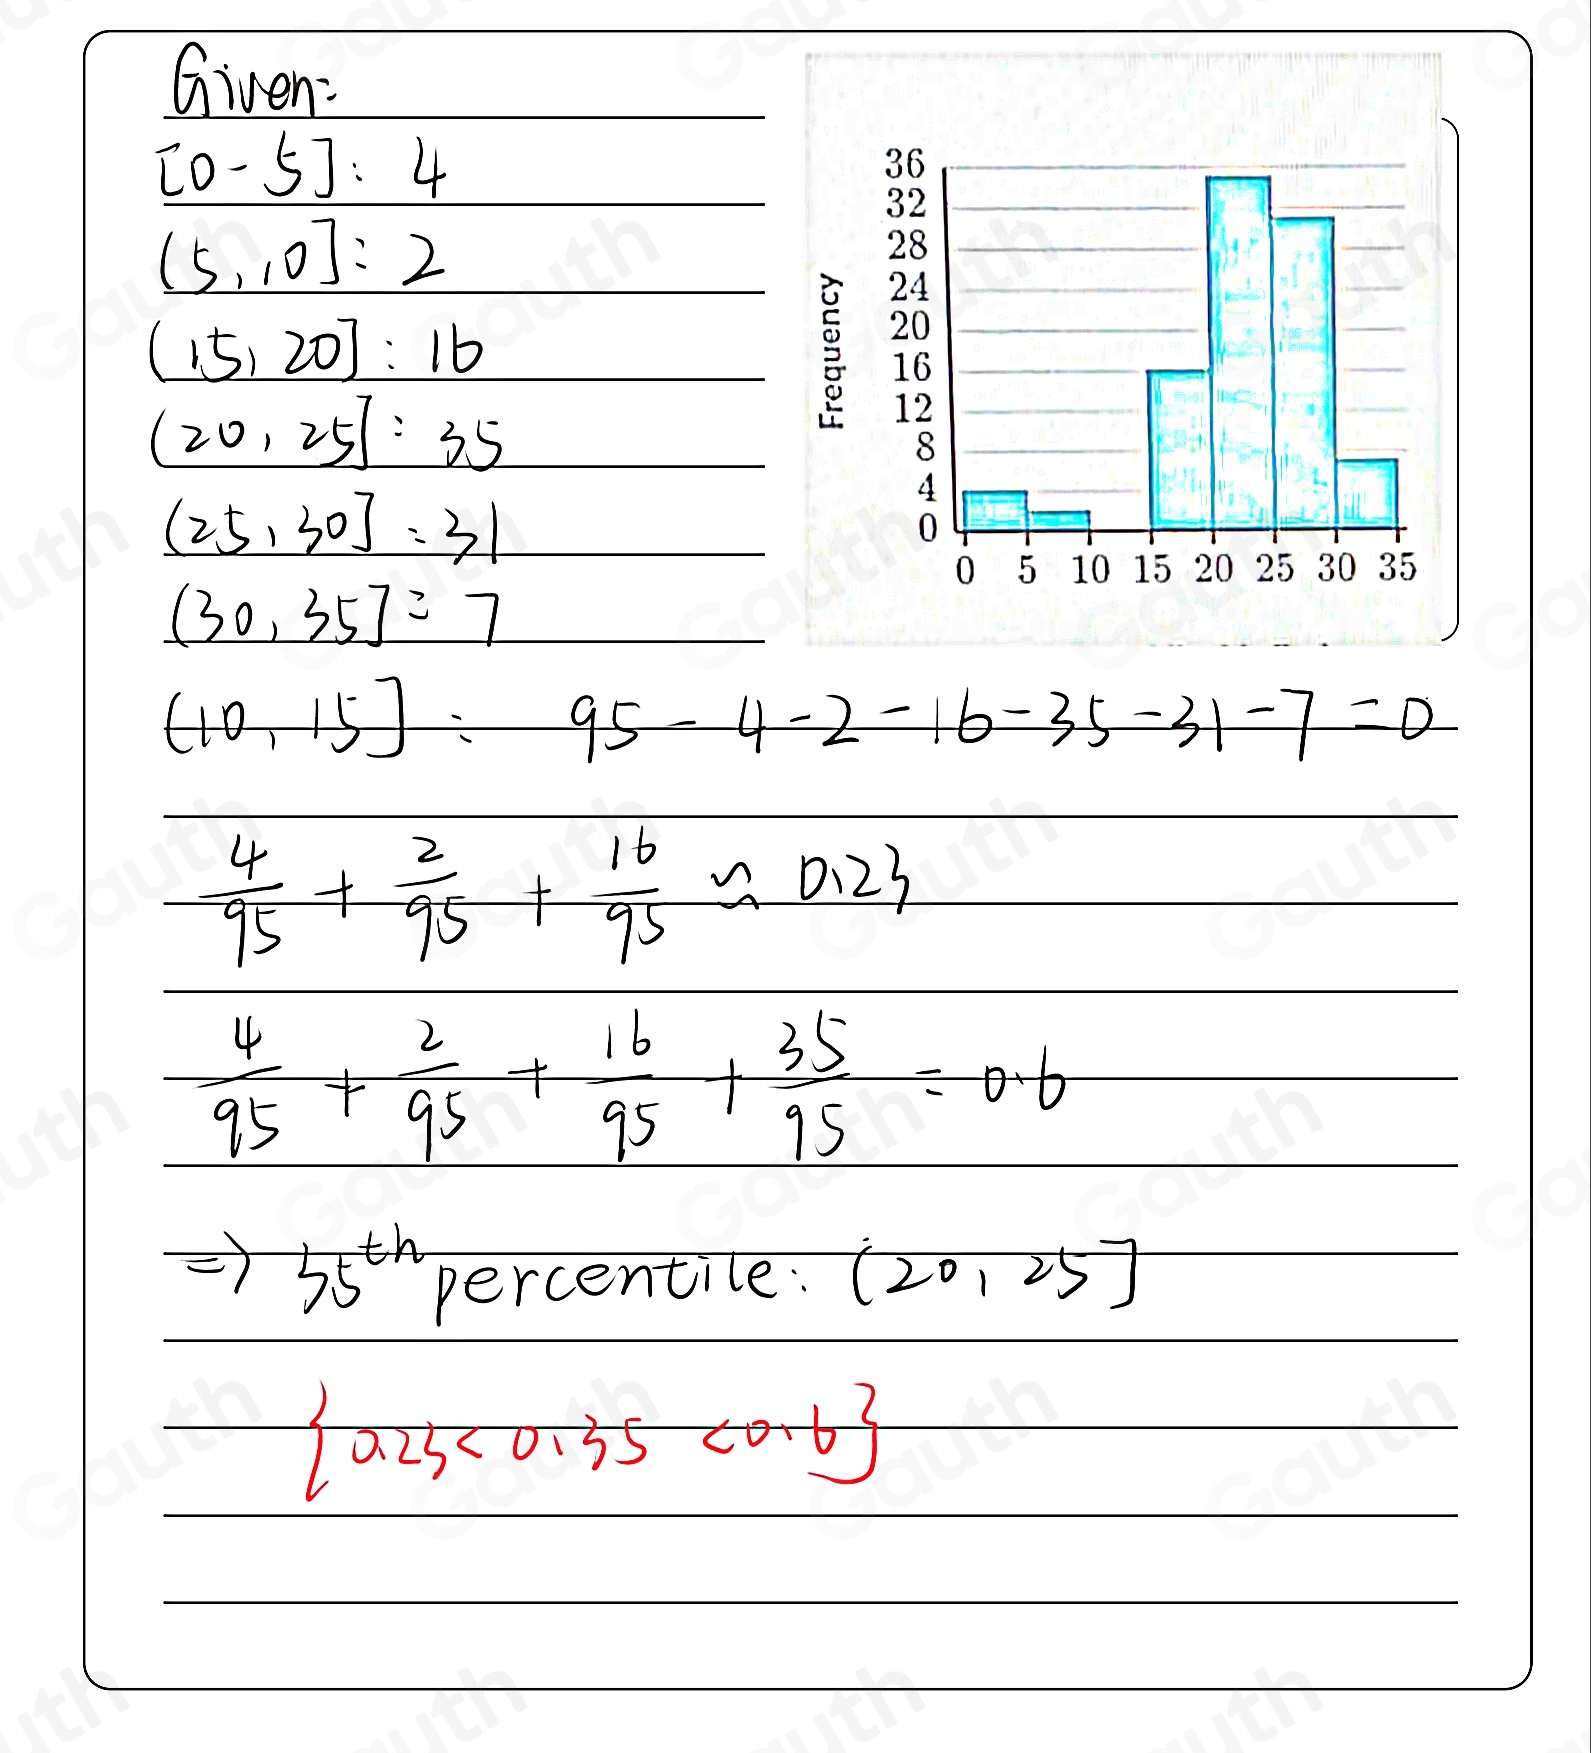 Given:
[0-5]: 4
(5, 10]: 2
(15, 20]: 16
(20, 25]: 35
(25, 30]: 31
(30, 35]: 7
Frequency
36
32
28
24
20
16
12
8
4
0
0 5 10 15 20 25 30 35
(10, 15]: 95-4-2-16-35-31-7=0
4/95 + 2/95 + 16/95 ≈ 0.23
4/95 + 2/95 + 16/95 + 35/95 = 0.6
=> 35th percentile: (20, 25]
{0.23< 0.35 <0.6}